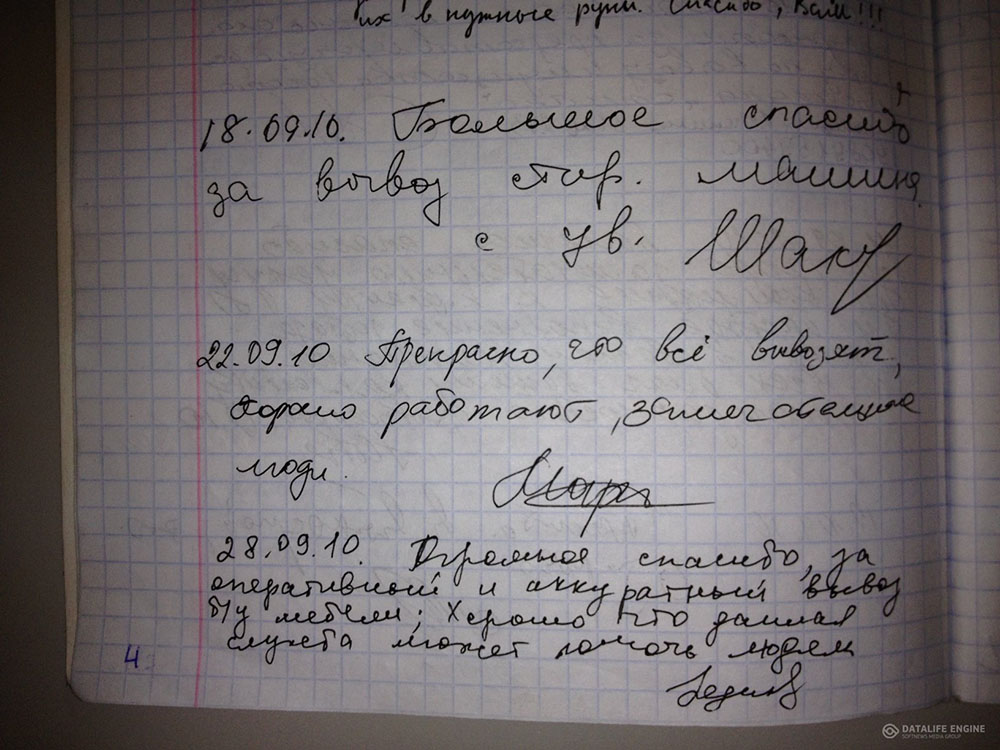 их в нужные руки. Спасибо, Вам!!!
18.09.10. Большое спасибо
за вывоз стир. машины.
с ув.
22.09.10 Прекрасно, что всё вывозят,
хорошо работают, замечательные
люди.
28.09.10. Огромное спасибо, за
оперативный и аккуратный вывоз
б/у мебели; Хорошо что данная
служба может помочь людям
4
DATALIFE ENGINE
SOFTNEWS MEDIA GROUP